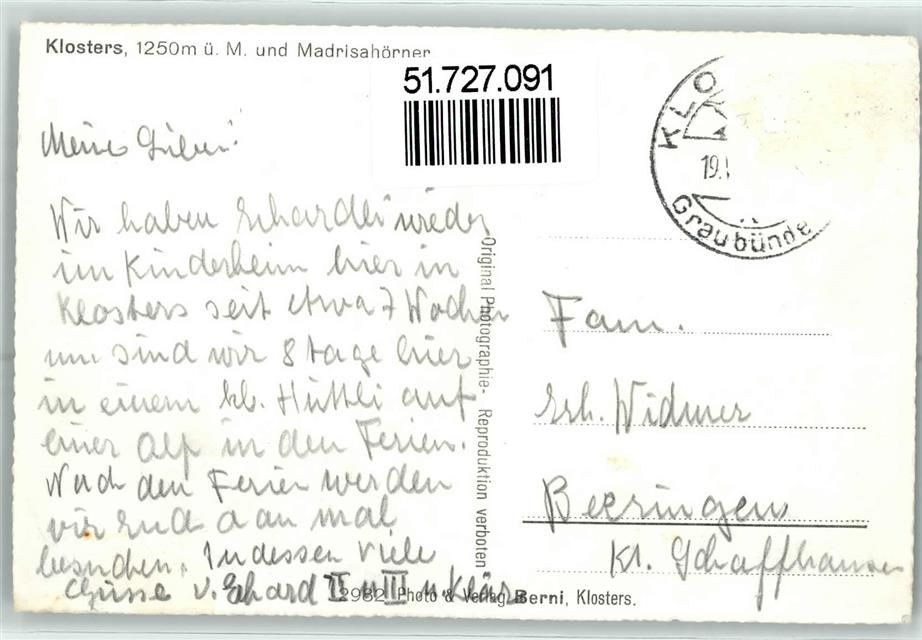 Klosters, 1250m ü. M. und Madrisahörner
51.727.091
KLO
19.
Graubünde
Meine Lieben!
Wir haben Erhardli wieder
im Kinderheim hier in
Klosters seit etwa 7 Wochen
nun sind wir 8 Tage hier
in einem kl. Hüttli auf
einer Alp in den Ferien.
Nach den Ferien werden
wir Euch dan mal
besuchen. Indessen viele
Grüsse v. Erhard II u III u Klär
Original Photographie- Reproduktion verboten
Fam.
Erh. Widmer
Beeringen
Kt. Schaffhausen
2982 Photo & Verlag Berni, Klosters.